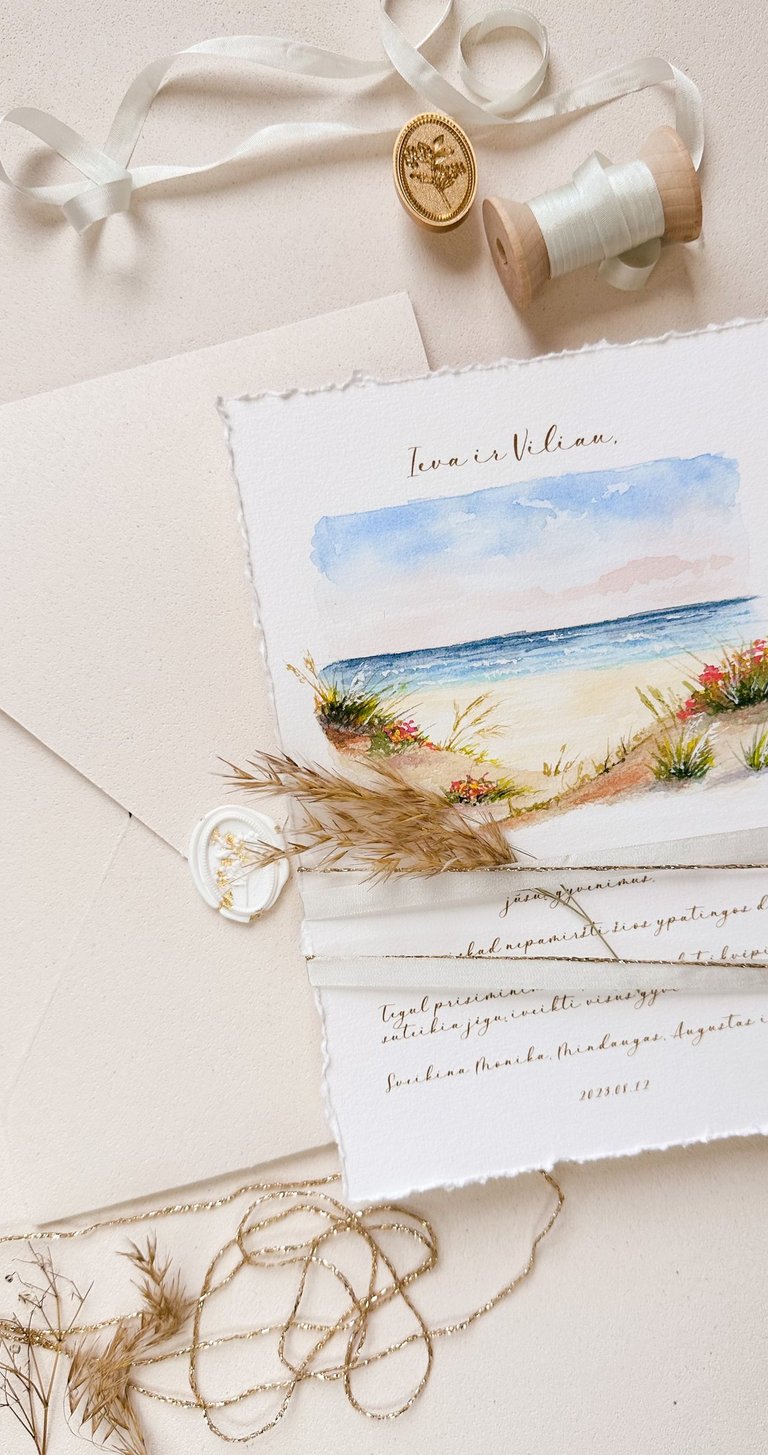 Ieva ir Viliau,
jūsų gyvenimus.
kad nepamiršti šios ypatingos
Tegul prisimini
suteikia jėgų įveikti visus gyv
Sveikina Monika, Mindaugas, Augustas i
2023.08.12